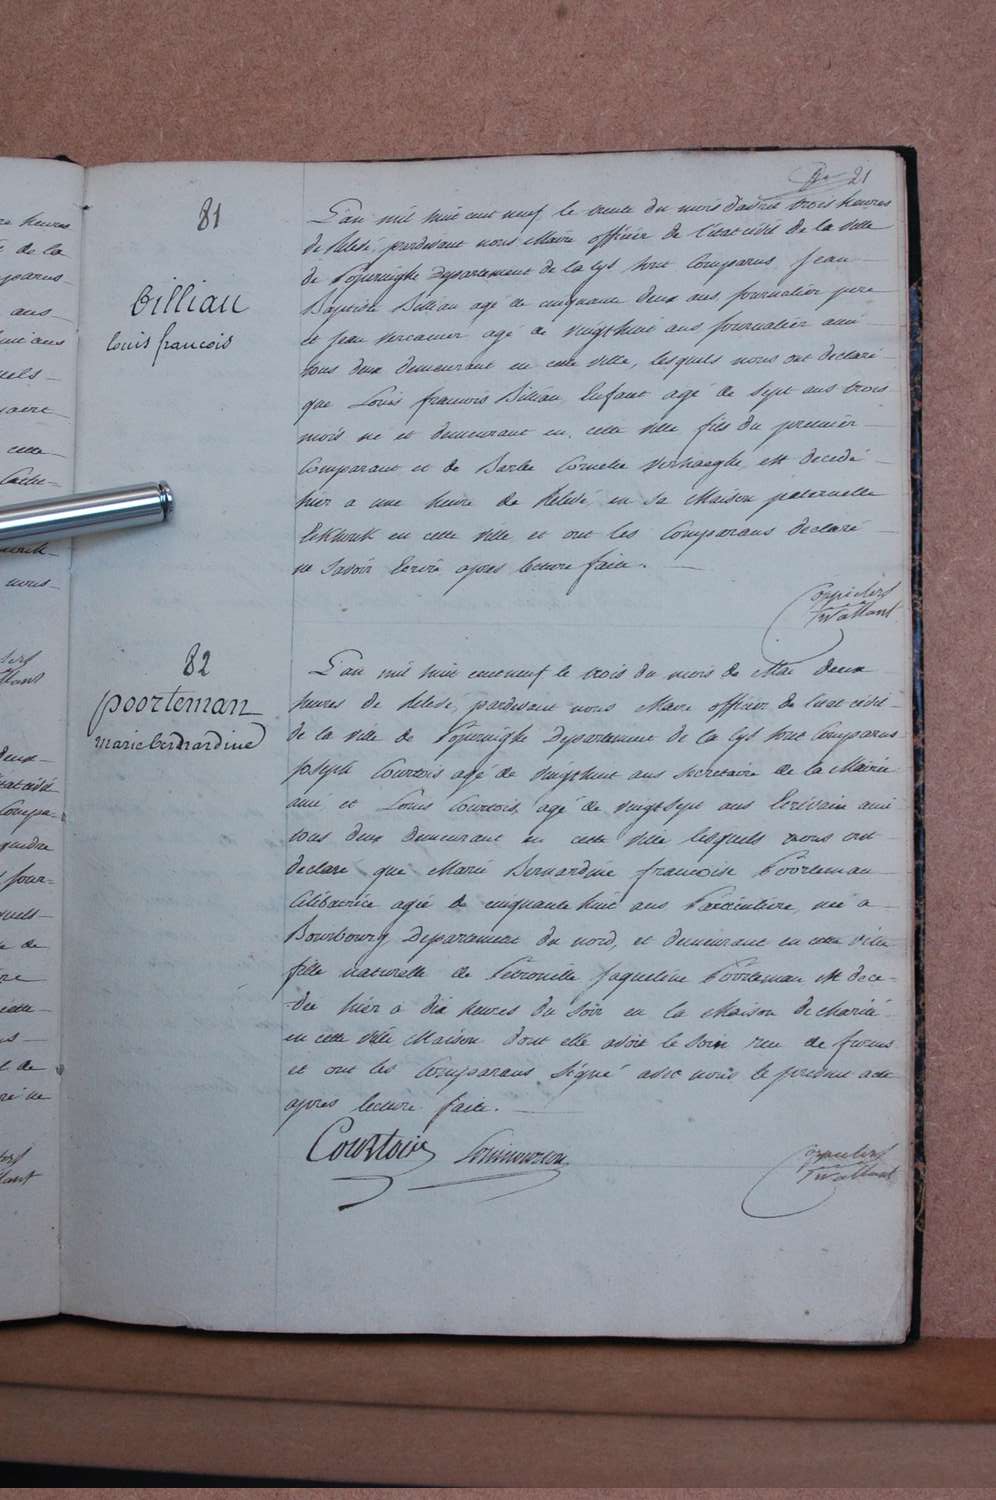 21
81
Billiau
louis francois
L'an mil huit cent neuf le trente du mois d'avril trois heures
de Relevé, pardevant nous Maire officier de l'état civil de la ville
de Poperinghe Departement de la Lys sont Comparus Jean
Baptiste Billiau agé de cinquante deux ans journalier pere
et Jean Vercamer agé de vingthuit ans journalier ami
tous deux demeurant en cette ville, lesquels nous ont declaré
que Louis francois Billiau Enfant agé de sept ans trois
mois né et demeurant en cette ville fils du premier
Comparant et de Barbe Cornelie Verhaeghe est decedé
hier a une heure de Relevé en sa Maison paternelle
en cette ville et ont les Comparans declaré
ne savoir Ecrire apres lecture faite.
82
poorteman
marie bernardine
L'an mil huit cent neuf le trois du mois de Mai deux
heures de Relevé, pardevant nous Maire officier de l'état civil
de la ville de Poperinghe Departement de la Lys sont Comparus
Joseph Courtois agé de vingthuit ans secretaire de la Mairie
ami et Louis Courtois agé de vingtsept ans Ecrivain ami
tous deux demeurant en cette ville lesquels nous ont
declare que Marie Bernardine francoise Poorteman
Célibatrice agée de cinquante huit ans née a
Bourbourg Departement du nord, et demeurant en cette ville
fille naturelle de Petronille Jaqueline Poorteman est dece-
dée hier a dix heures du soir en la Maison de Charité
en cette ville Maison dont elle avoit le soin rue de furnes
et ont les Comparans signé avec nous le present acte
apres lecture faite.
Courtois